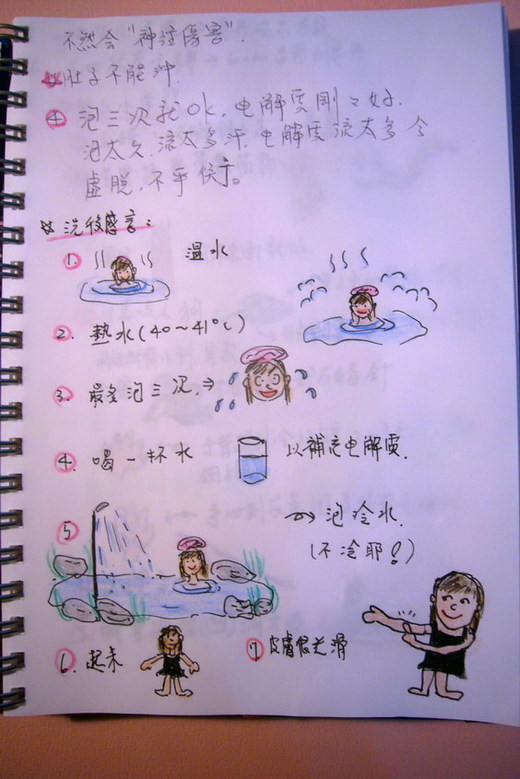 不然会"神经傷害".
肚子不能沖.
④ 泡三次就OK,电解质刚刚好.
泡太久,流太多汗,电解质流太多会
虛脱,不平衡。
洗後感言:
1. 温水
2. 热水(40~41°C)
3. 最多泡三次.⇒
4. 喝一杯水 以補充电解质.
5 → 泡冷水.
(不冷耶!)
6. 起来 7 皮膚很光滑